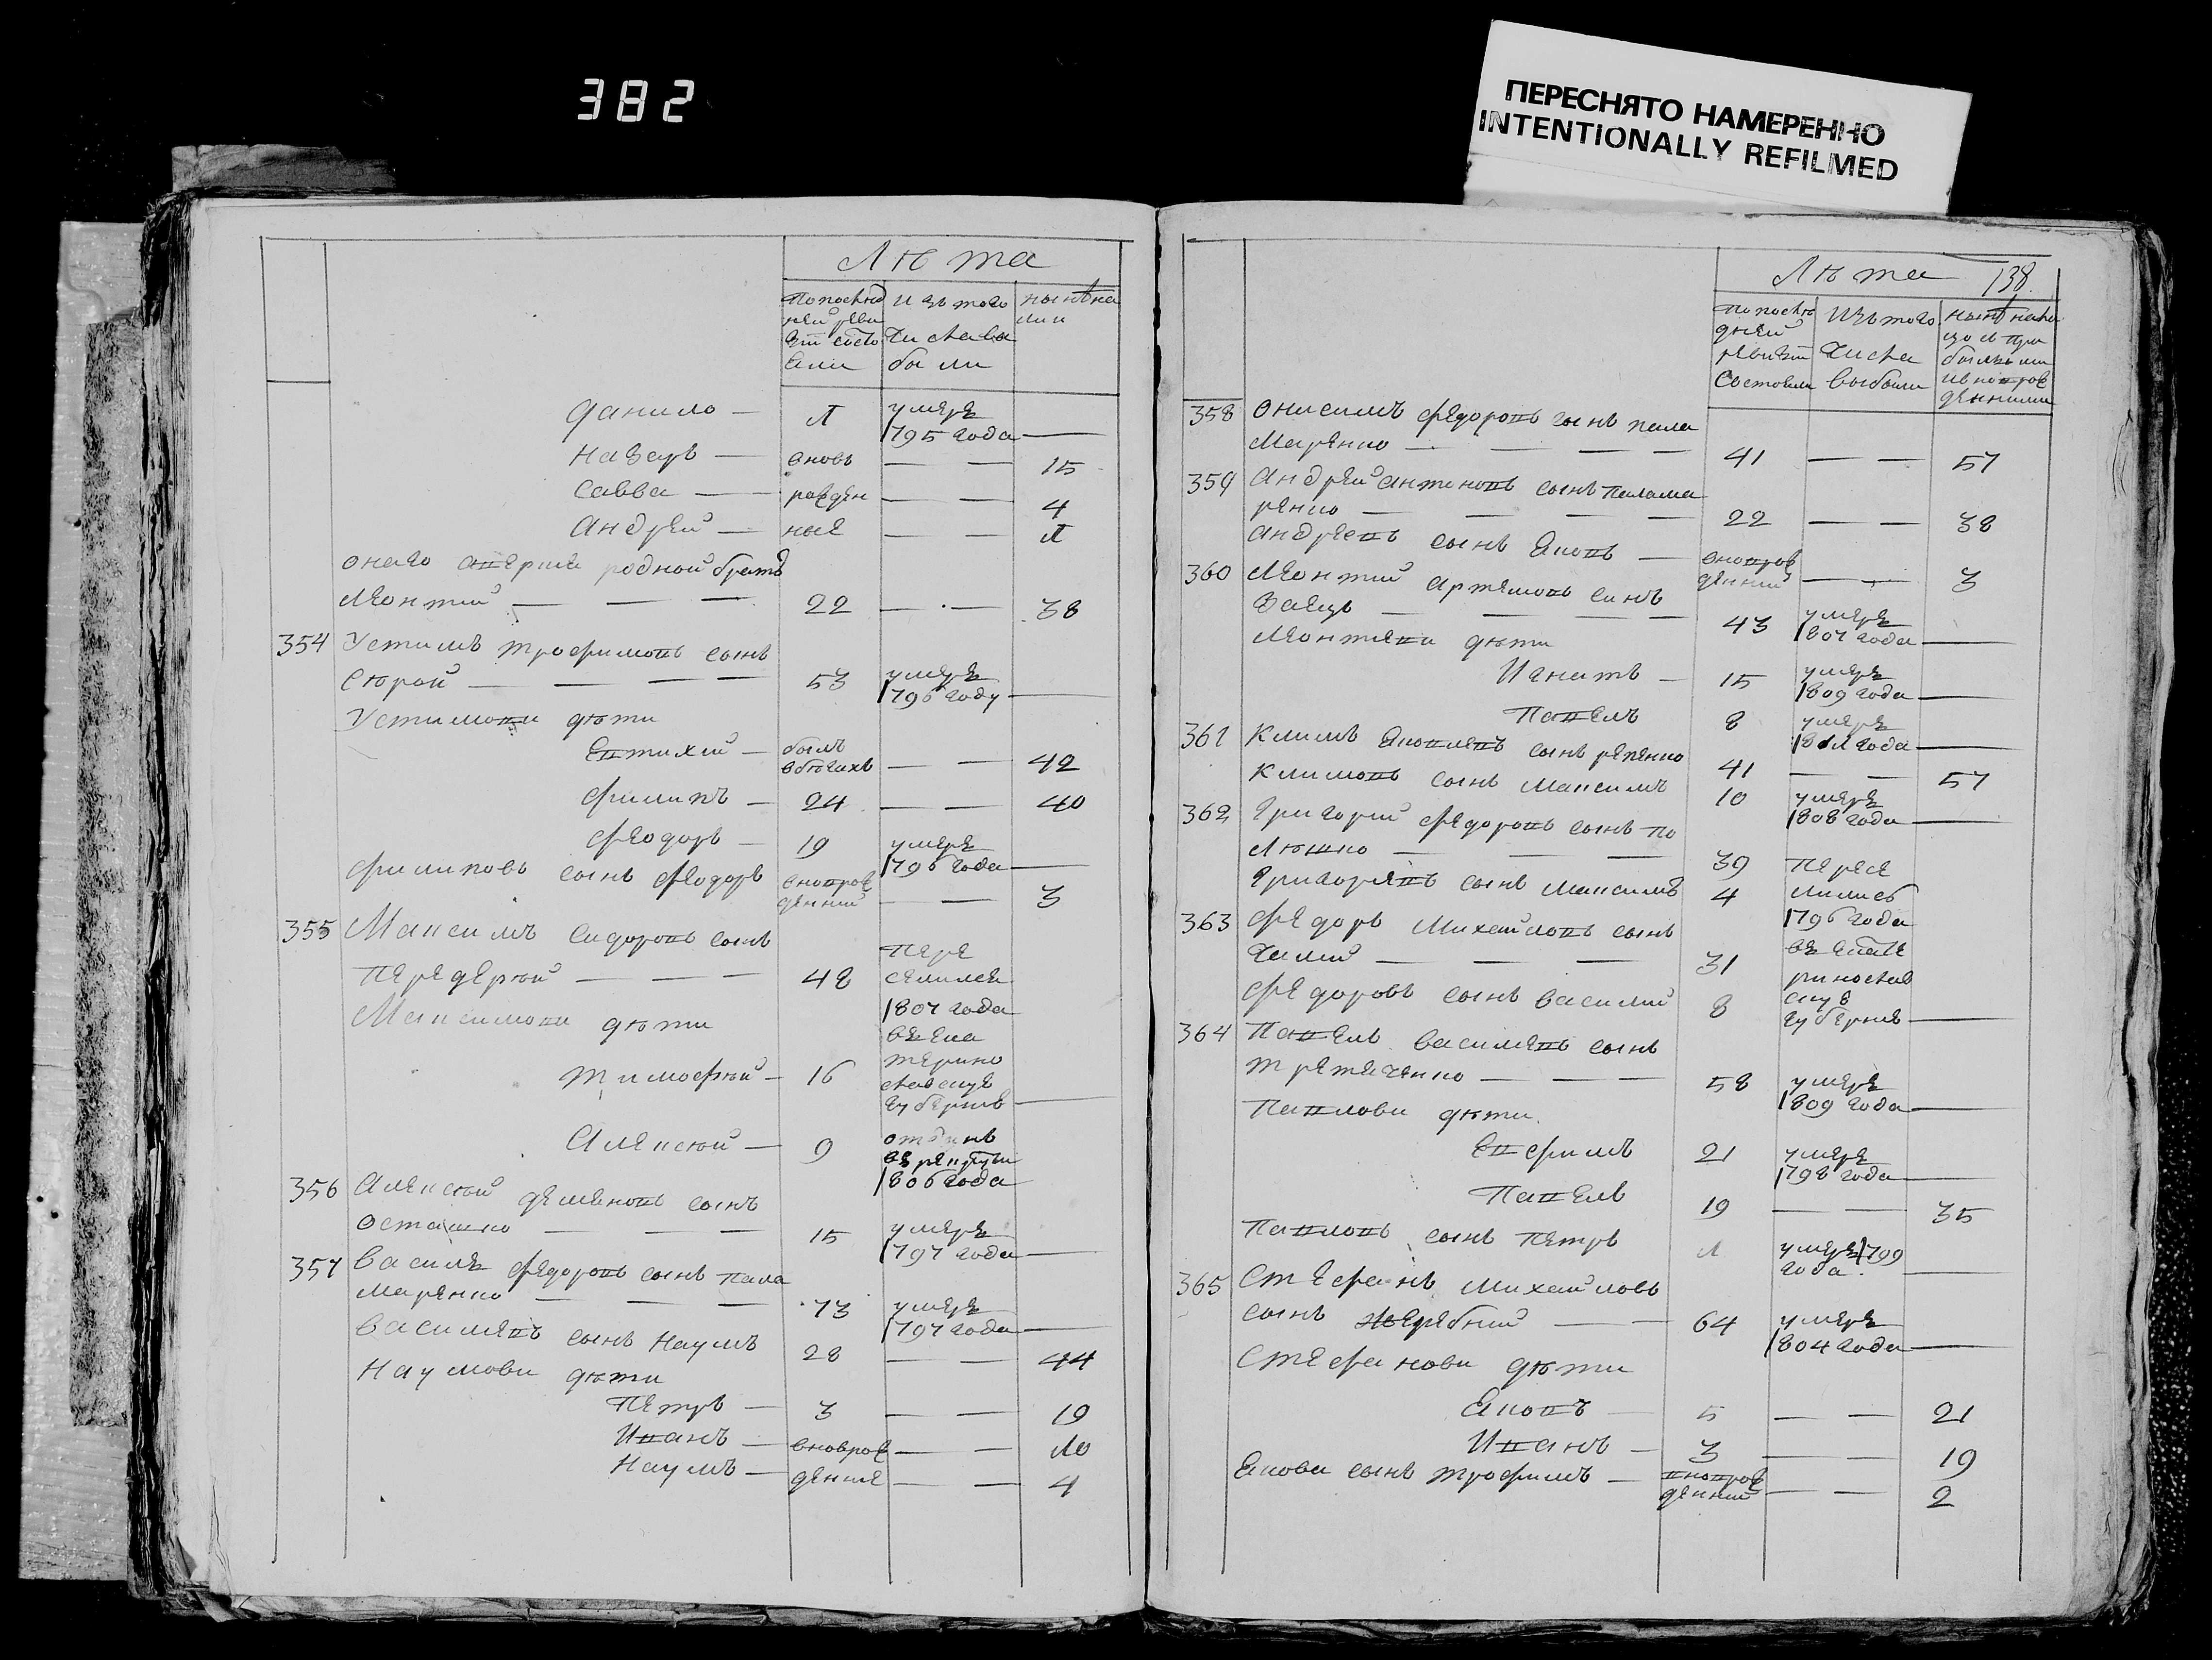 382
ПЕРЕСНЯТО НАМЕРЕННО
INTENTIONALLY REFILMED
Лѣта
Попослѣд
ней реви
зіи состо
яли
изъ того
числа вы
были
нынѣ на
лицо
Данило — Л умеръ 1795 года —
Назаръ — вновь — — 15
Савва — рожден — — 4
Андрей — ные — — Л
онаго аверкія родной братъ
Леонтий — — — 22 — — 38
354 Устимъ трофимовъ сынъ
Сѣрой — — — — 53 умеръ 1796 году —
Устимови дѣти
Евтихий — былъ вбѣгахъ — — 42
Филипъ — 24 — — 40
Феодоръ — 19 умеръ 1796 года —
Филиповъ сынъ Феодоръ вновьрож денний — — 3
355 Максимъ Сидоровъ сынъ
Передерѣй — — — 48
Пере
селился
1807 года
въ Ека
терино
славскую
губернѣ —
Максимови дѣти
Тимофѣй — 16
Алексѣй — 9 отданъ въ рекруты 1806 года
356 Алексѣй Демяновъ сынъ
Осташко — — — 15 умеръ 1797 года —
357 Василь Федоровъ сынъ Пала
маренко — — — 73 умеръ 1797 года —
Василіевъ сынъ Наумъ 28 — — 44
Наумови дѣти
Петръ — 3 — — 19
Иванъ — вновьрож — — 10
Наумъ — дение — — 4
Лѣта 138.
Попослѣ
дней
ревизіи
Состояли
Изъ того
числа
выбыли
358 Онисимъ Федоровъ сынъ пала
маренко — — — — 41 — — 57
359 Андрей антоновъ сынъ Палама
ренко — — — — 22 — — 38
Андреевъ сынъ Яковъ — вновьрож денний — — 3
360 Леонтий Артемовъ синъ
Заецъ — — — — 43 умеръ 1807 года —
Леонтиеви дѣти
Игнатъ — 15 умеръ 1809 года —
Павелъ 8 умеръ 181Л года —
361 Климъ Яковлевъ сынъ репенко 41 — — 57
Климовъ сынъ Максимъ 10 умеръ 1808 года —
362 Григорий Федоровъ сынъ По
люшко — — — 39
Григориевъ сынъ Максимъ 4
Пересе
лились
1796 года
въ Екате
ринослав
скую
губернѣ —
363 Федоръ Михайловъ сынъ
Халий — — — 31
Федоровъ сынъ Василий 8
364 Павелъ Василіевъ сынъ
третяченко — — — 58 умеръ 1809 года —
Павлови дѣти
Евфимъ 21 умеръ 1798 года —
Павелъ 19 — — 35
Павловъ сынъ Петръ Л умеръ 1799 года. —
365 Стефанъ Михайловъ
сынъ Жеребний — — 64 умеръ 1804 года —
Стефанови дѣти
Яковъ — 5 — — 21
Иванъ — 3 — — 19
Якова сынъ Трофимъ — вновьрож денний — — 2